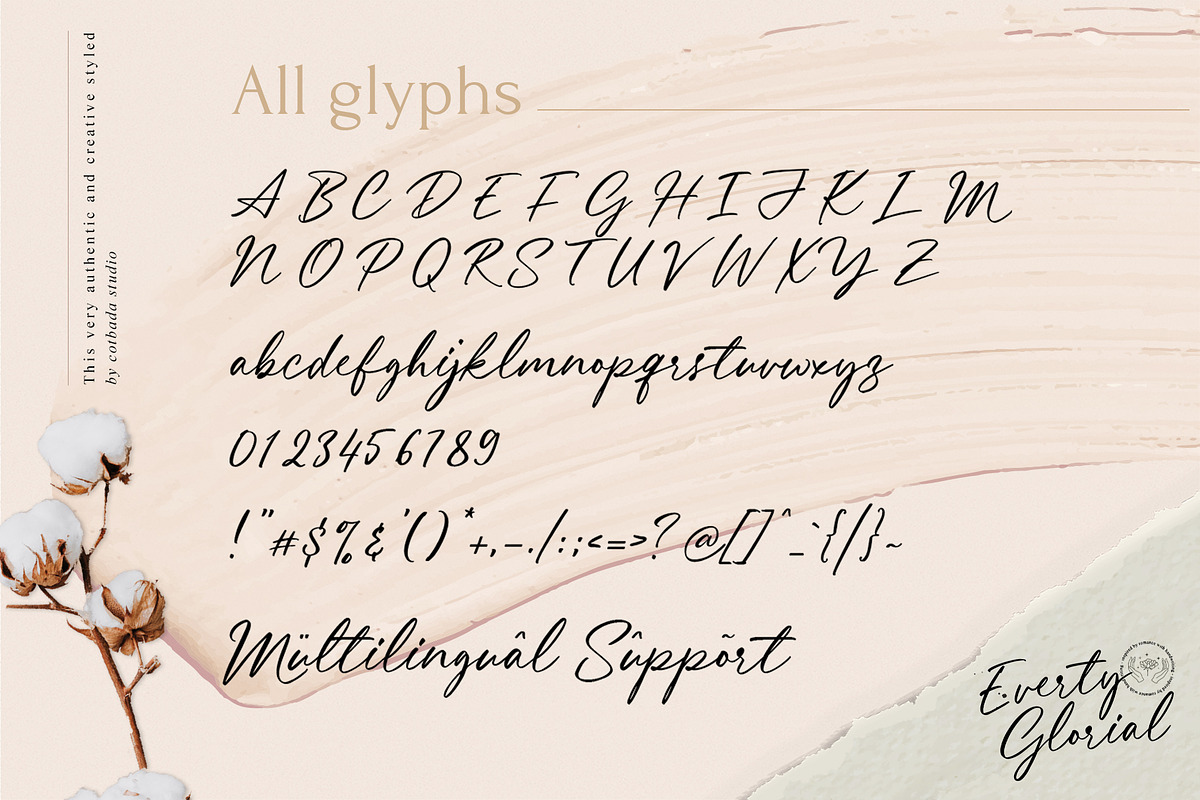 This very authentic and creative styled
by cotbada studio
All glyphs
A B C D E F G H I J K L M
N O P Q R S T U V W X Y Z
abcdefghijklmnopqrstuvwxyz
0123456789
!"#$%&'()*+,-./:;<=>?@[]^_`{/}~
Mültilinguâl Sûppõrt
Everty
Glorial